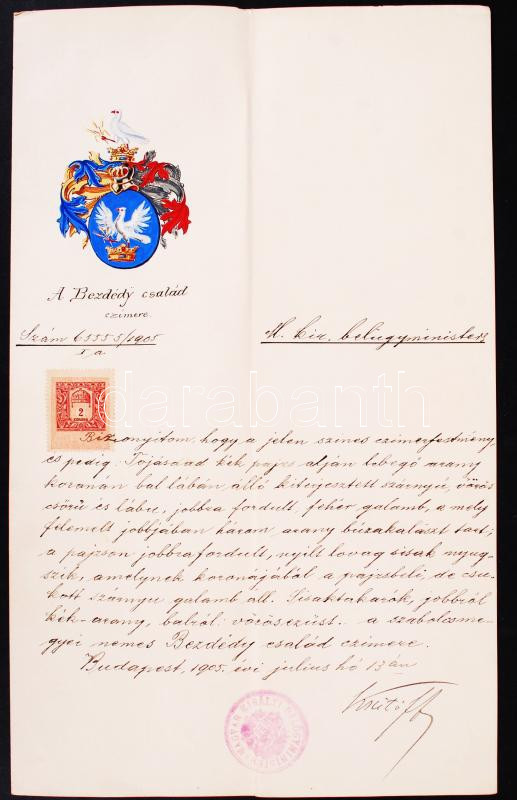 A Bezdédy család
czimere.
Szám 65555/1905
I a
M. kir. belügyminister
2
KORONA
Bizonyitom, hogy a jelen szines czimerfestmény
és pedig: Tojásdad kék pajzs alján lebegő arany
koronán bal lábán álló kiterjesztett szárnyú, vörös
csőrü és lábu, jobbra fordult, fehér galamb, a mely
felemelt jobbjában három arany búzakalászt tart;
a pajzson jobbrafordult, nyilt lovag sisak nyug-
szik, amelynek koronájából a pajzsbeli, de csu-
kott szárnyu galamb áll. Sisaktakarók, jobbról
kék-arany, balról vörös-ezüst. a szabolcsme-
gyei nemes Bezdédy család czimere.
Budapest, 1905. évi julius hó 13án
MAGYAR KIRÁLYI BELÜGYMINISTER
darabanth